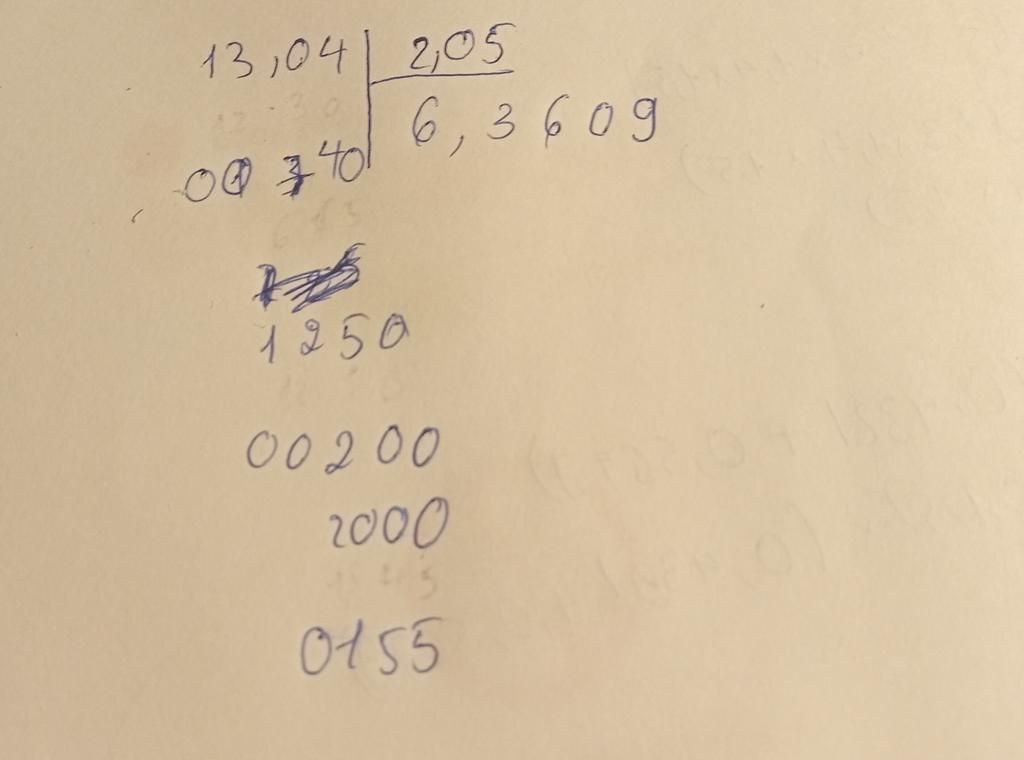 13,04 2,05
6,3609
00 740
1250
00200
2000
0155